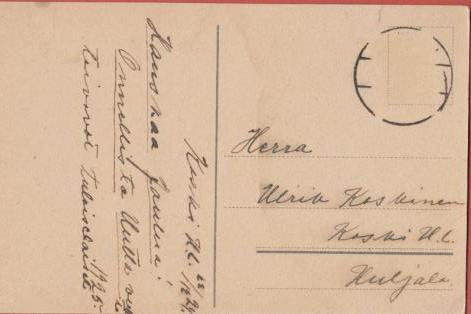 Koski Hl. 22/12 24.
Hauskaa Joulua!
Onnellista Uutta
toivovat 1925.
Herra
Ulrik Koskinen
Koski H.l.
Kuljala.